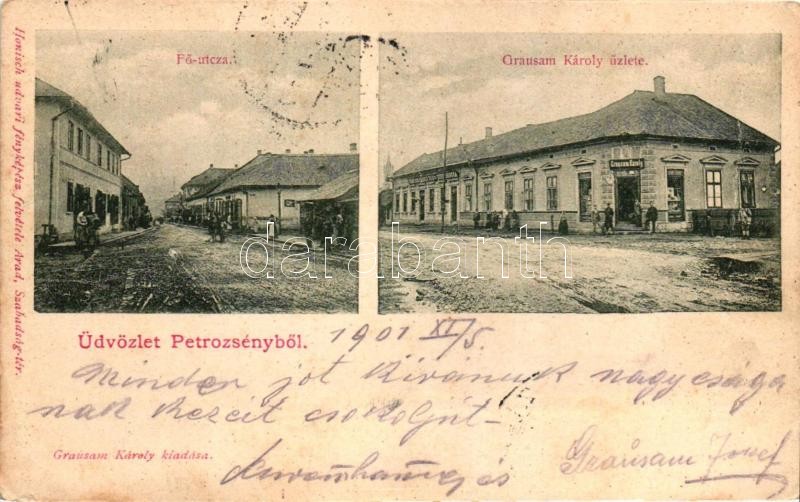 Honisch udvari fényképész felvétele Arad, Szabadság-tér.
Fő-utcza.
Grausam Károly üzlete.
Grausam Károly
darabanth
Üdvözlet Petrozsényből.
1901 XI/5
Minden jót kivánunk nagysága
nak kezeit csókoljuk
Grausam Károly kiadása.
és
Grausam József